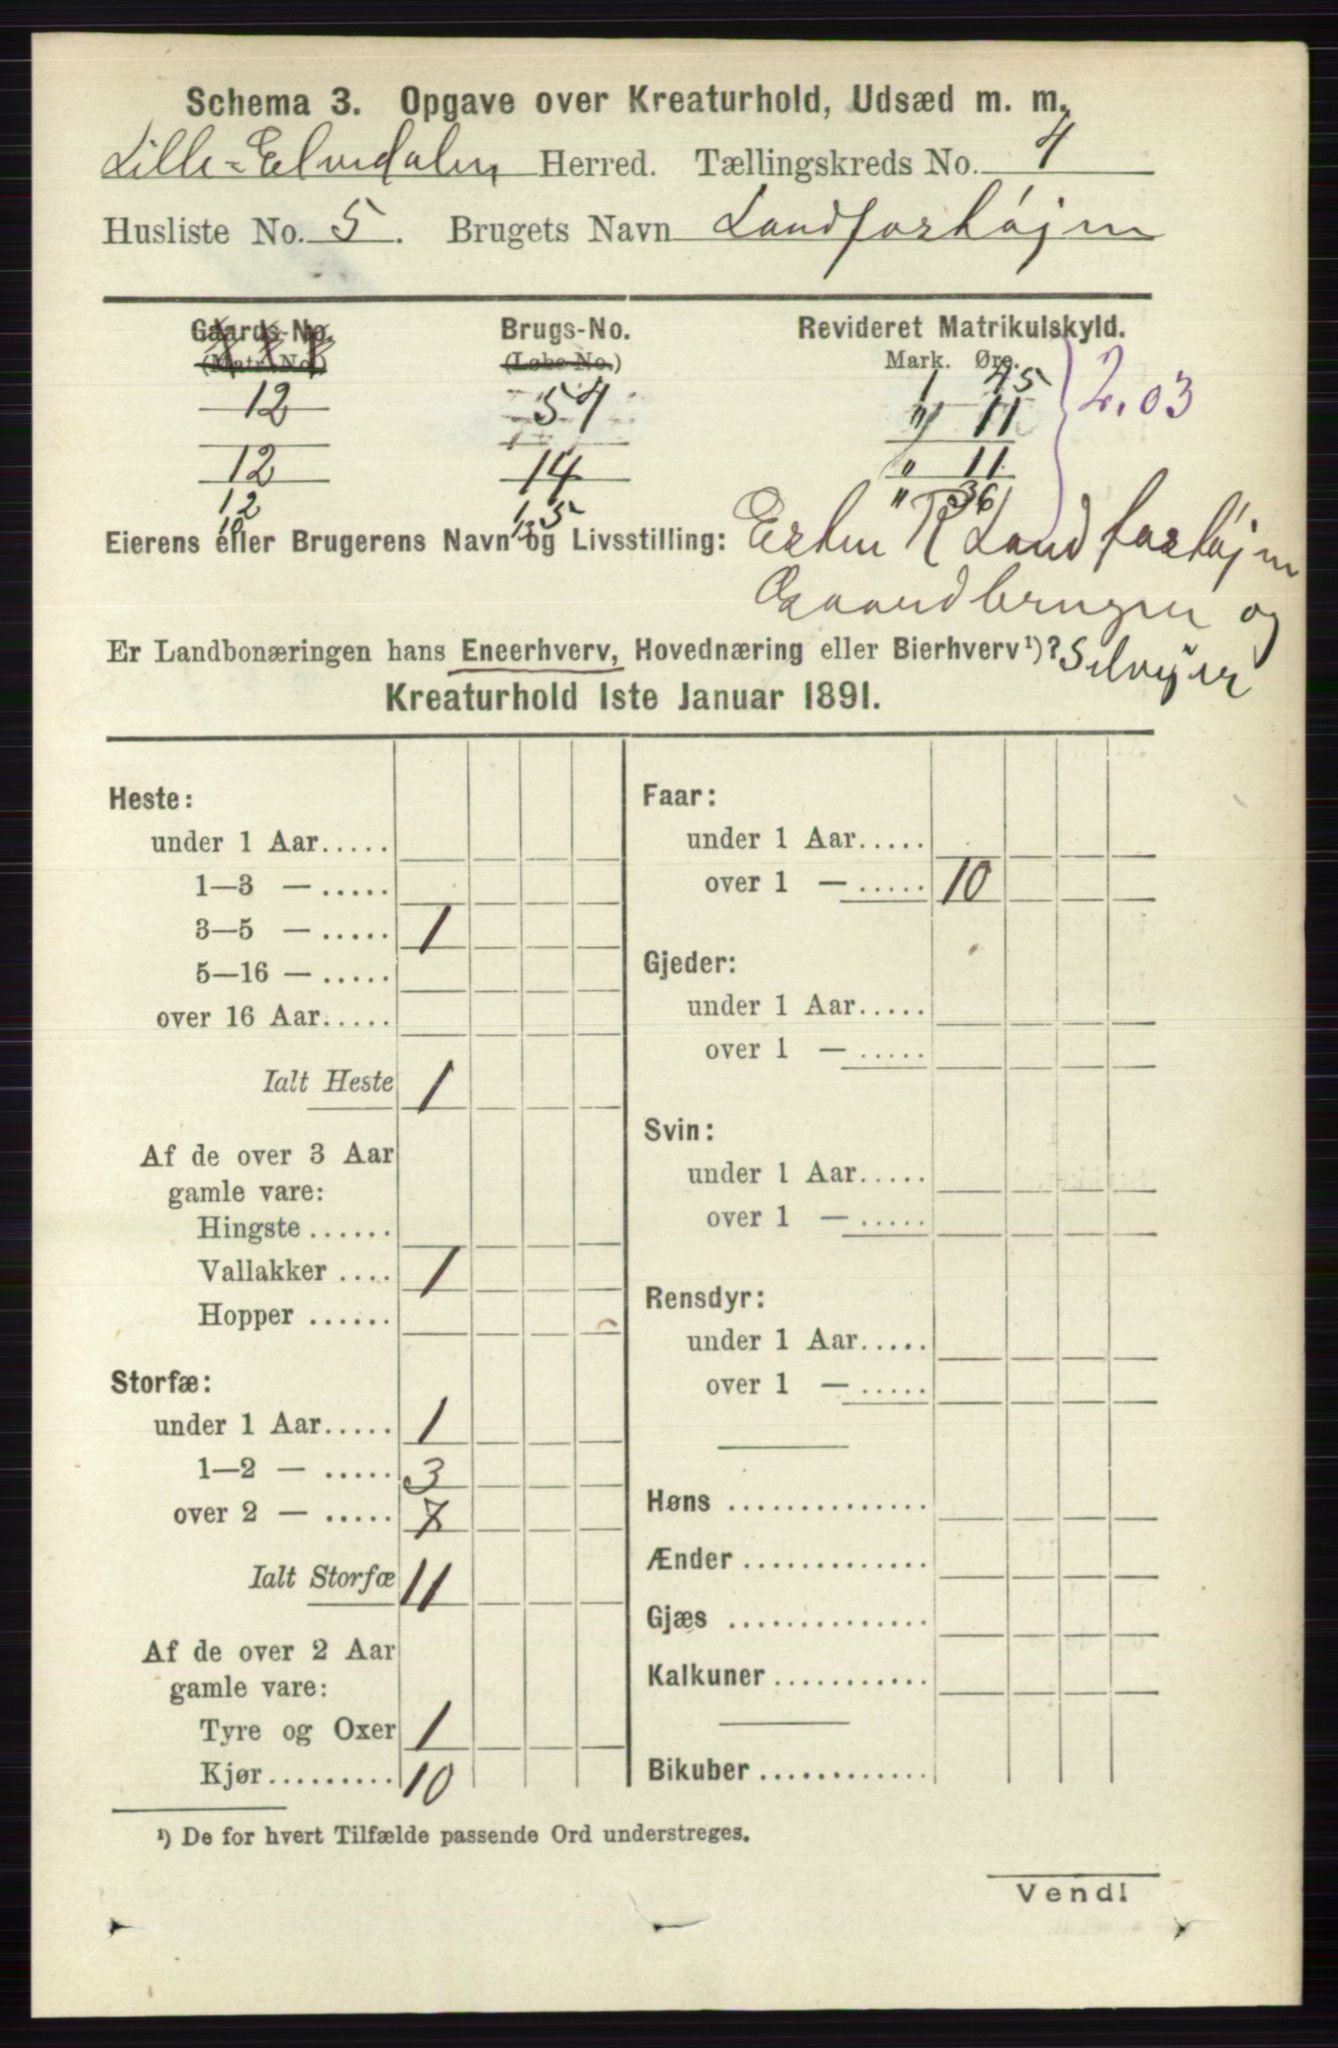 Schema 3. Opgave over Kreaturhold, Udsæd m. m.
Lille-Elvedalen Herred. Tællingskreds No. 4
Husliste No. 5. Brugets Navn
Gaards-No. Brugs-No. Revideret Matrikulskyld.
(Matr. No.) (Løbe-No.) Mark. Øre.
1 45
12 54 " 11 2.03
12 14 " 11
12 15 " 36
Eierens eller Brugerens Navn og Livsstilling:
Gaardbruger og
Er Landbonæringen hans Eneerhverv, Hovednæring eller Bierhverv¹)? Selvejer
Kreaturhold 1ste Januar 1891.
Heste:
under 1 Aar.....
1—3 — .....
3—5 — ..... 1
5—16 — .....
over 16 Aar.....
Ialt Heste 1
Af de over 3 Aar
gamle vare:
Hingste ......
Vallakker .... 1
Hopper ......
Storfæ:
under 1 Aar..... 1
1—2 — ..... 3
over 2 — ..... 7
Ialt Storfæ 11
Af de over 2 Aar
gamle vare:
Tyre og Oxer 1
Kjør......... 10
Faar:
under 1 Aar.....
over 1 — ..... 10
Gjeder:
under 1 Aar.....
over 1 — .....
Svin:
under 1 Aar.....
over 1 — .....
Rensdyr:
under 1 Aar.....
over 1 — .....
Høns ..............
Ænder .............
Gjæs ..............
Kalkuner ...........
Bikuber ............
¹) De for hvert Tilfælde passende Ord understreges.
Vend!